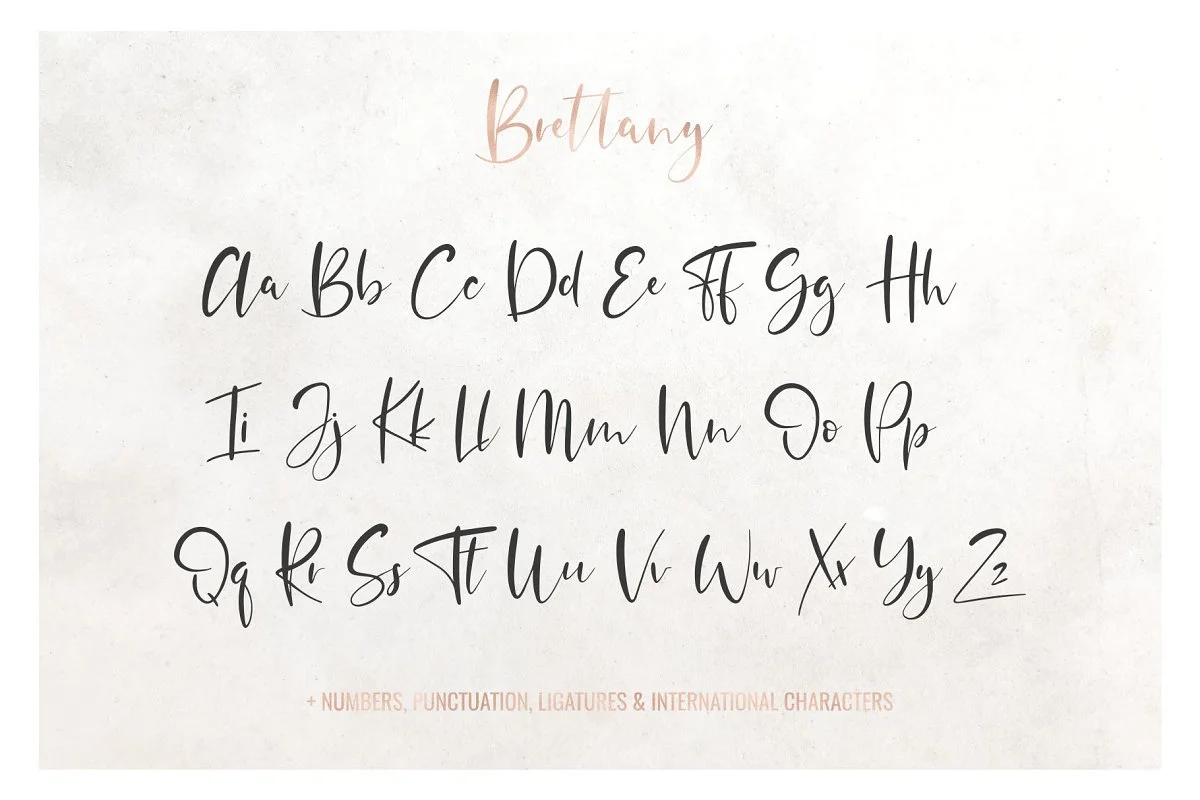 Brettany
Aa Bb Cc Dd Ee Ff Gg Hh
Ii Jj Kk Ll Mm Nn Oo Pp
Qq Rr Ss Tt Uu Vv Ww Xx Yy Zz
+ NUMBERS, PUNCTUATION, LIGATURES & INTERNATIONAL CHARACTERS